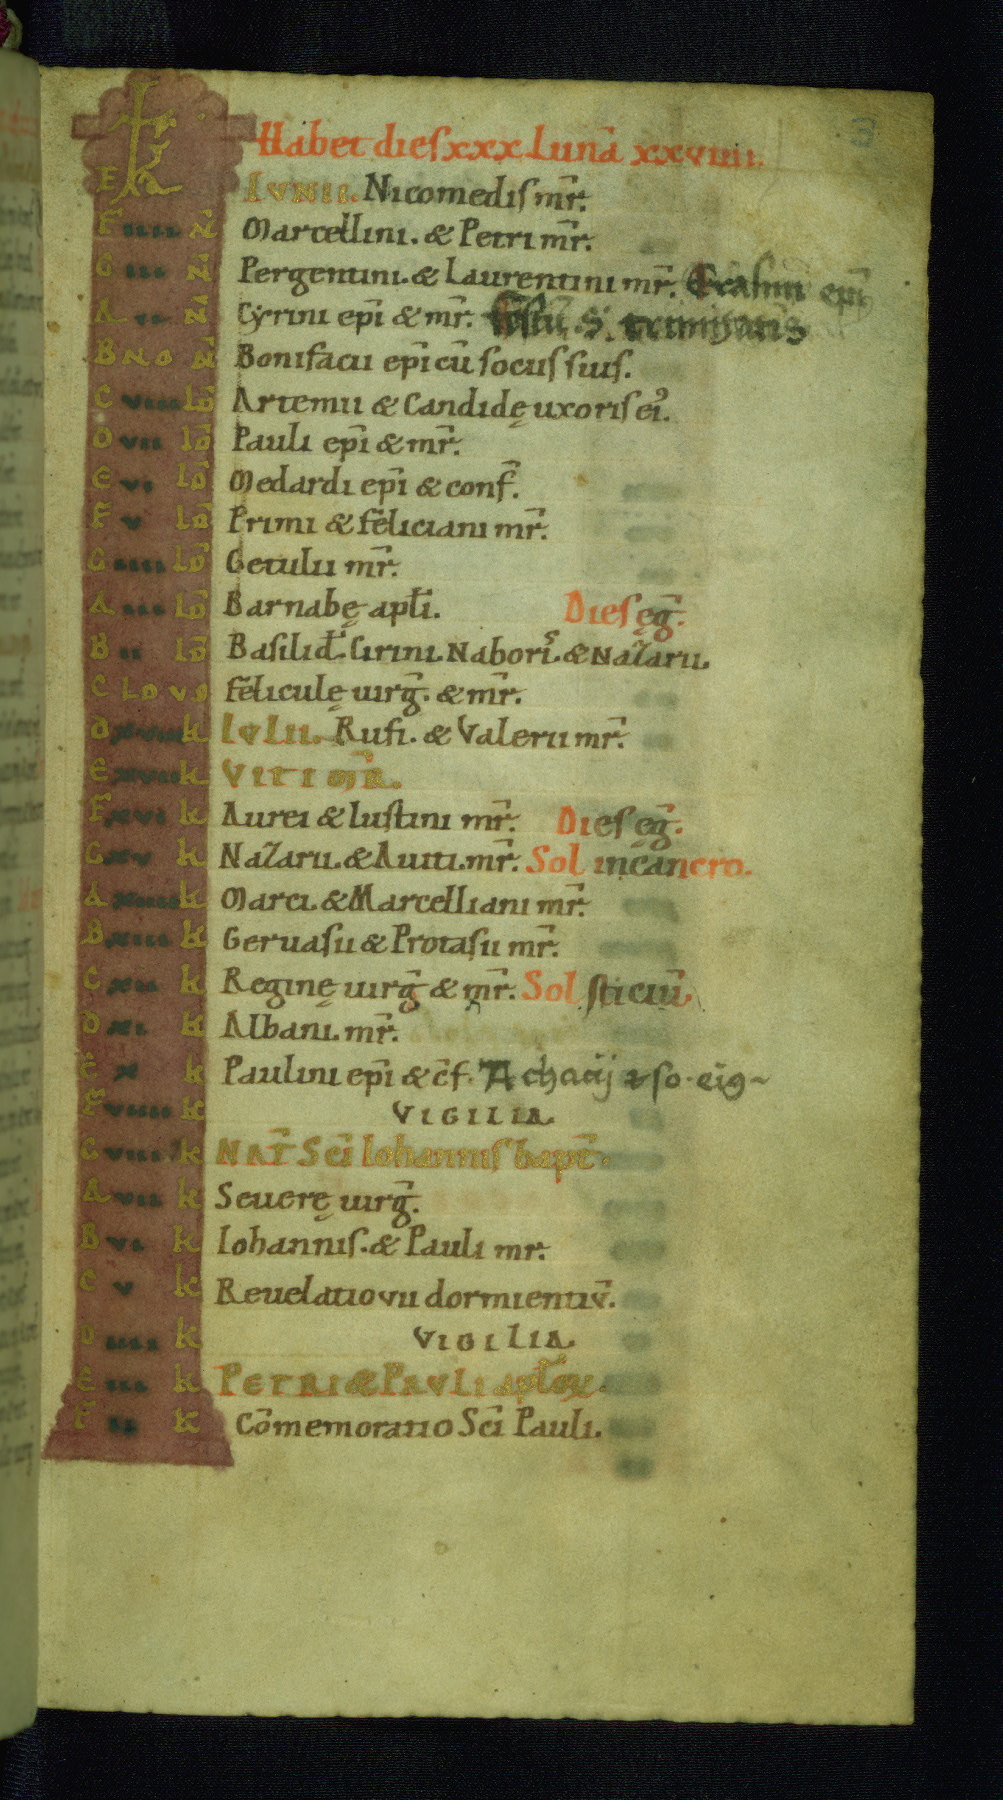 Habet dies xxx. Lunā xxviiii.
E kł IVNII. Nicomedis mr̄.
F iiii N̄ Marcellini. & Petri mr̄.
G iii N̄ Pergentini. & Laurentini mr̄. Erasmi epī
A ii N̄ Cyrini epī & mr̄. festū S. trinitatis
B NO N̄ Bonifacii epī cū sociis suis.
C viii Id̄ Artemii & Candidę uxoris ei᾽.
D vii Id̄ Pauli epī & mr̄.
E vi Id̄ Medardi epī & conf̄.
F v Id̄ Primi & feliciani mr̄.
G iiii Id̄ Getulii mr̄.
A iii Id̄ Barnabę aplī. Dies ęḡ.
B ii Id̄ Basilid̄. Cirini. Naborī. & Nazarii.
C IDVS feliculę uirḡ. & mr̄.
D xviii k IVLII. Rufi. & Valerii mr̄.
E xvii k VITI MR̄.
F xvi k Aurei & Iustini mr̄. Dies ęḡ.
G xv k Nazarii. & Auiti. mr̄. Sol in cancro.
A xiiii k Marci. & Marcelliani mr̄.
B xiii k Geruasii & Protasii mr̄.
C xii k Reginę uirḡ & mr̄. Sol sticiū
D xi k Albani. mr̄.
E x k Paulini epī & cf̄. Achacij & so. ei9
F viiii k VIGILIA
G viii k NAT̄ Scī Iohannis bapt̄.
A vii k Seuerę uirḡ.
B vi k Iohannis. & Pauli mr̄.
C v k Reuelatio vii dormientiū.
D iiii k VIGILIA.
E iii k PETRI & PAVLI aplōꝝ.
F ii k Cōmemoratio Scī Pauli.